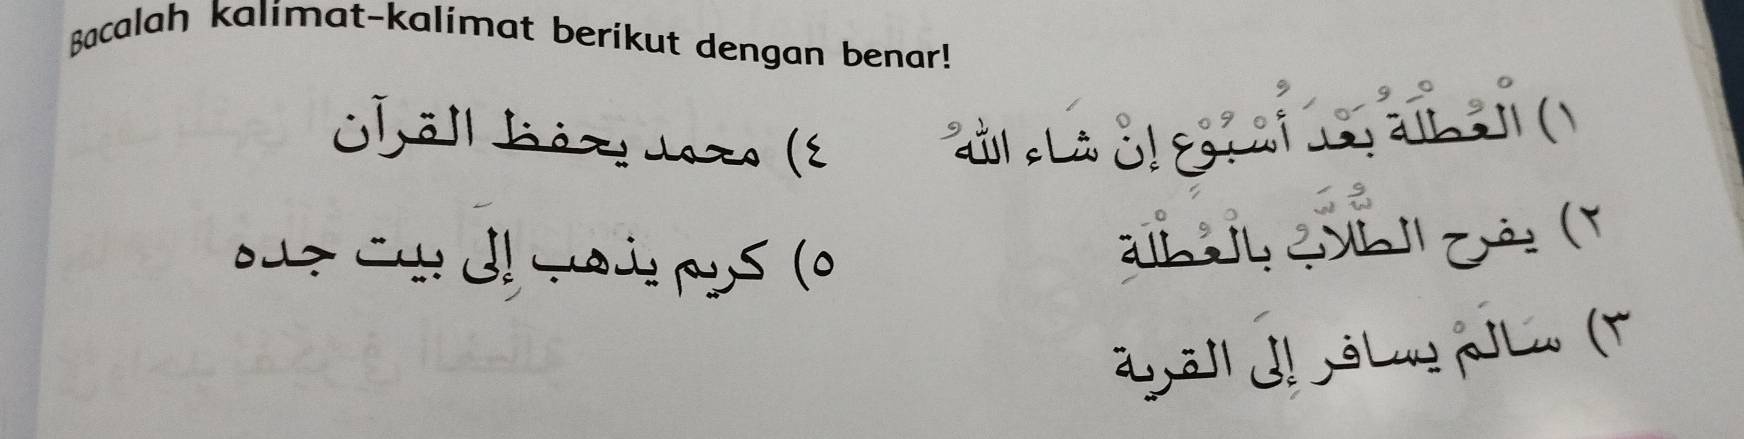 Bacalah kalimat-kalimat berikut dengan benar!
١) الْعُطْلَةُ بَعْدَ أُسْبُوْعٍ إِنْ شَاء اللّٰهُ
٢) يفرح الطُّلَّابُ بالْعُطْلَة
٣) سَالمْ يسافر إِلَى القرية
٤) محمد يحفظ القرآن
٥) كريم يذهب إِلَى بيت جده